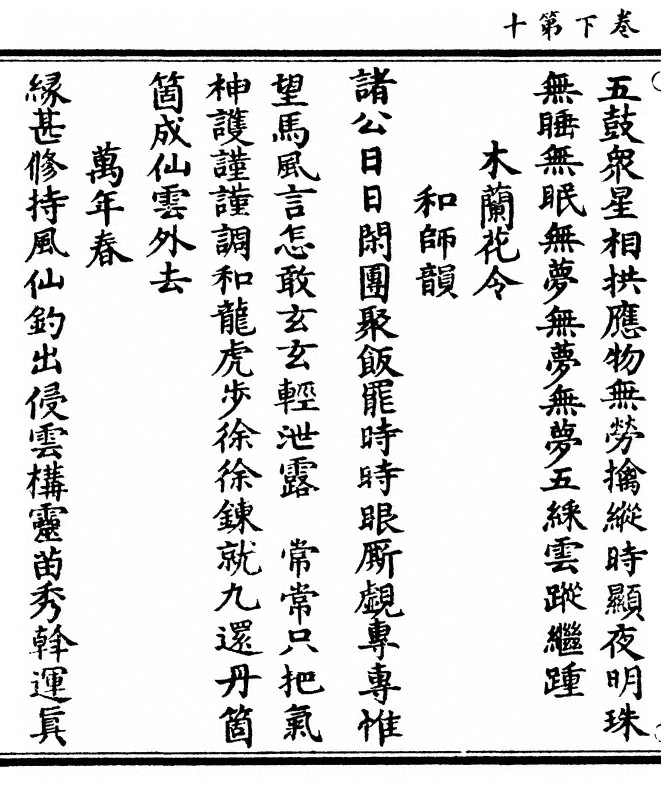 卷下第十
五鼓衆星相拱應物無勞擒縱時顯夜明珠
無睡無眠無夢無夢無夢五綵雲蹤繼踵
木蘭花令
和師韻
諸公日日閑團聚飯罷時時眼厮覷專專惟
望馬風言怎敢玄玄輕泄露 常常只把氣
神護謹謹調和龍虎步徐徐鍊就九還丹箇
箇成仙雲外去
萬年春
緣甚修持風仙釣出侵雲構靈苗秀斡運眞